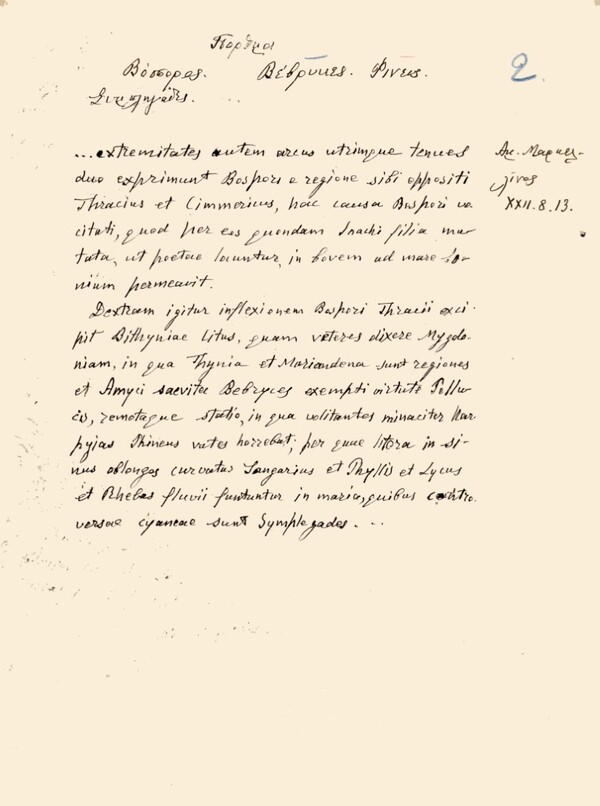 Πορθμοι
2
Βόσπορος. Βέβρυκες. Φινεύς.
Συμπληγάδες.
...extremitates autem arcus utrimque tenues
duo exprimunt Bospori e regione sibi oppositi
Thracius et Cimmericus, hac causa Bospori vo
citati, quod per eos quondam Inachi filia mu
tata, ut poetae locuntur, in bovem ad mare Io-
nium permeavit.
Dextram igitur inflexionem Bospori Thracii exci-
pit Bithyniae litus, quam veteres dixere Mygdo-
niam, in qua Thynia et Mariandena sunt regiones
et Amyci saevitia Bebryces exempti virtute Pollu-
cis, remotaque statio, in qua volitantes minaciter Har
pyias Phineus vates horrebat; per quae litora in si-
nus oblongos curvatos Sangarius et Phyllis et Lycus
et Rhebas fluvii funduntur in maria, quibus contro-
versae cyaneae sunt Symplegades. ...
Αμ. Μαρκελ-
λίνος
XXII. 8. 13.